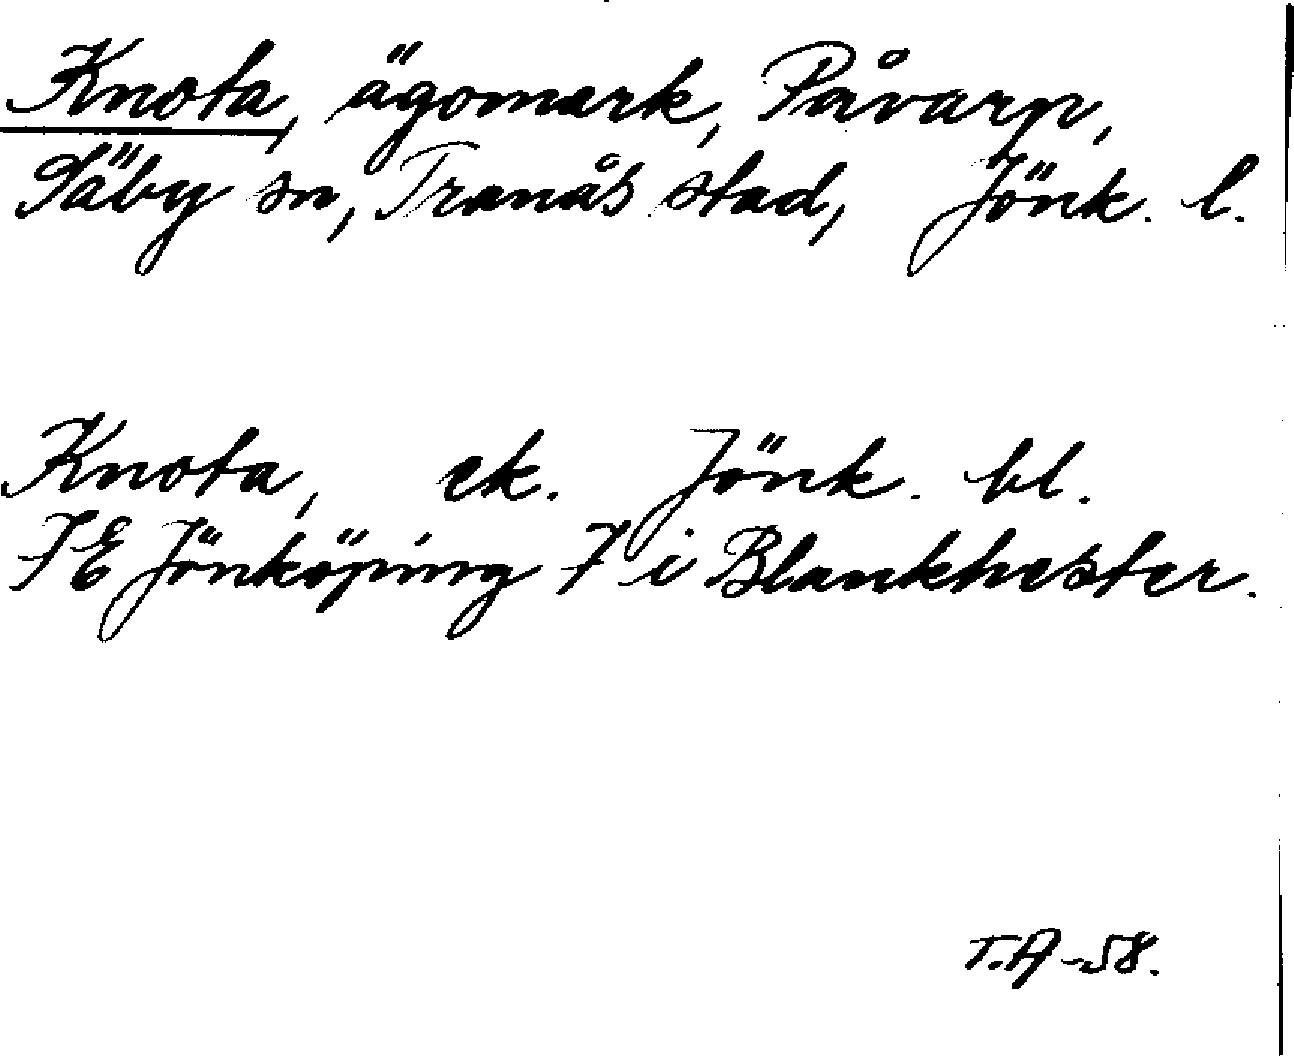 Knota, ägomark, Påvarp,
Säby sn, Tranås stad, Jönk. l.
Knota, ek. Jönk. bl.
JE Jönköping 7 i Blankhester.
T.A -58.